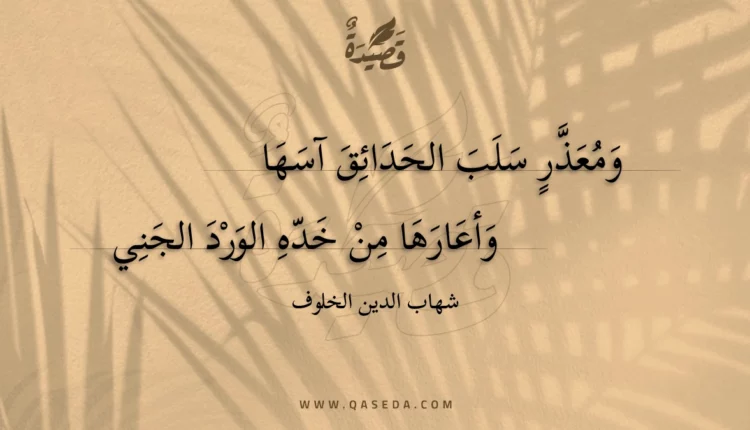 قَصِيْدَةٌ
وَمُعَذَّرٍ سَلَبَ الحَدَائِقَ آسَهَا
وَأعَارَهَا مِنْ خَدّهِ الوَرْدَ الجَنِي
شهاب الدين الخلوف
WWW.QASEDA.COM